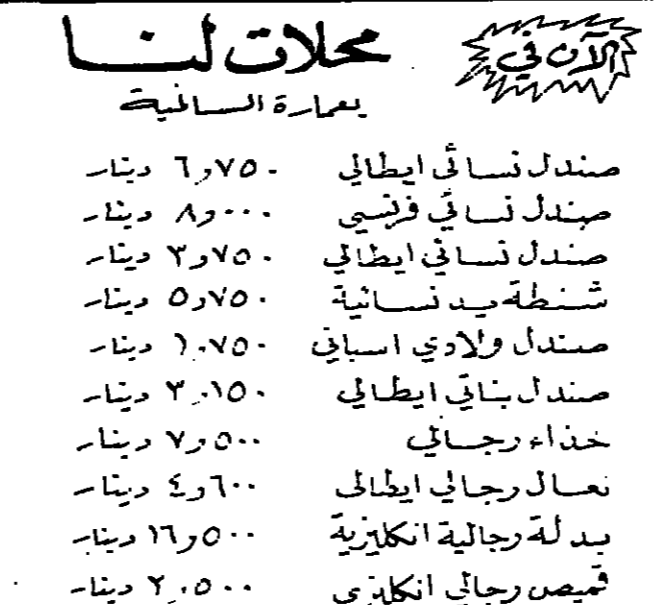 الآن في
محلات لنا
بعمارة السالمية
صندل نسائي ايطالي ٦٫٧٥٠ دينار
صندل نسائي فرنسي ٨٫٠٠٠ دينار
صندل نسائي ايطالي ٣٫٧٥٠ دينار
شنطة يد نسائية ٥٫٧٥٠ دينار
صندل ولادي اسباني ١٫٧٥٠ دينار
صندل بناتي ايطالي ٣٫١٥٠ دينار
حذاء رجالي ٧٫٥٠٠ دينار
نعال رجالي ايطالي ٤٫٦٠٠ دينار
بدلة رجالية انكليزية ١٦٫٥٠٠ دينار
قميص رجالي انكليزي ٢٫٥٠٠ دينار